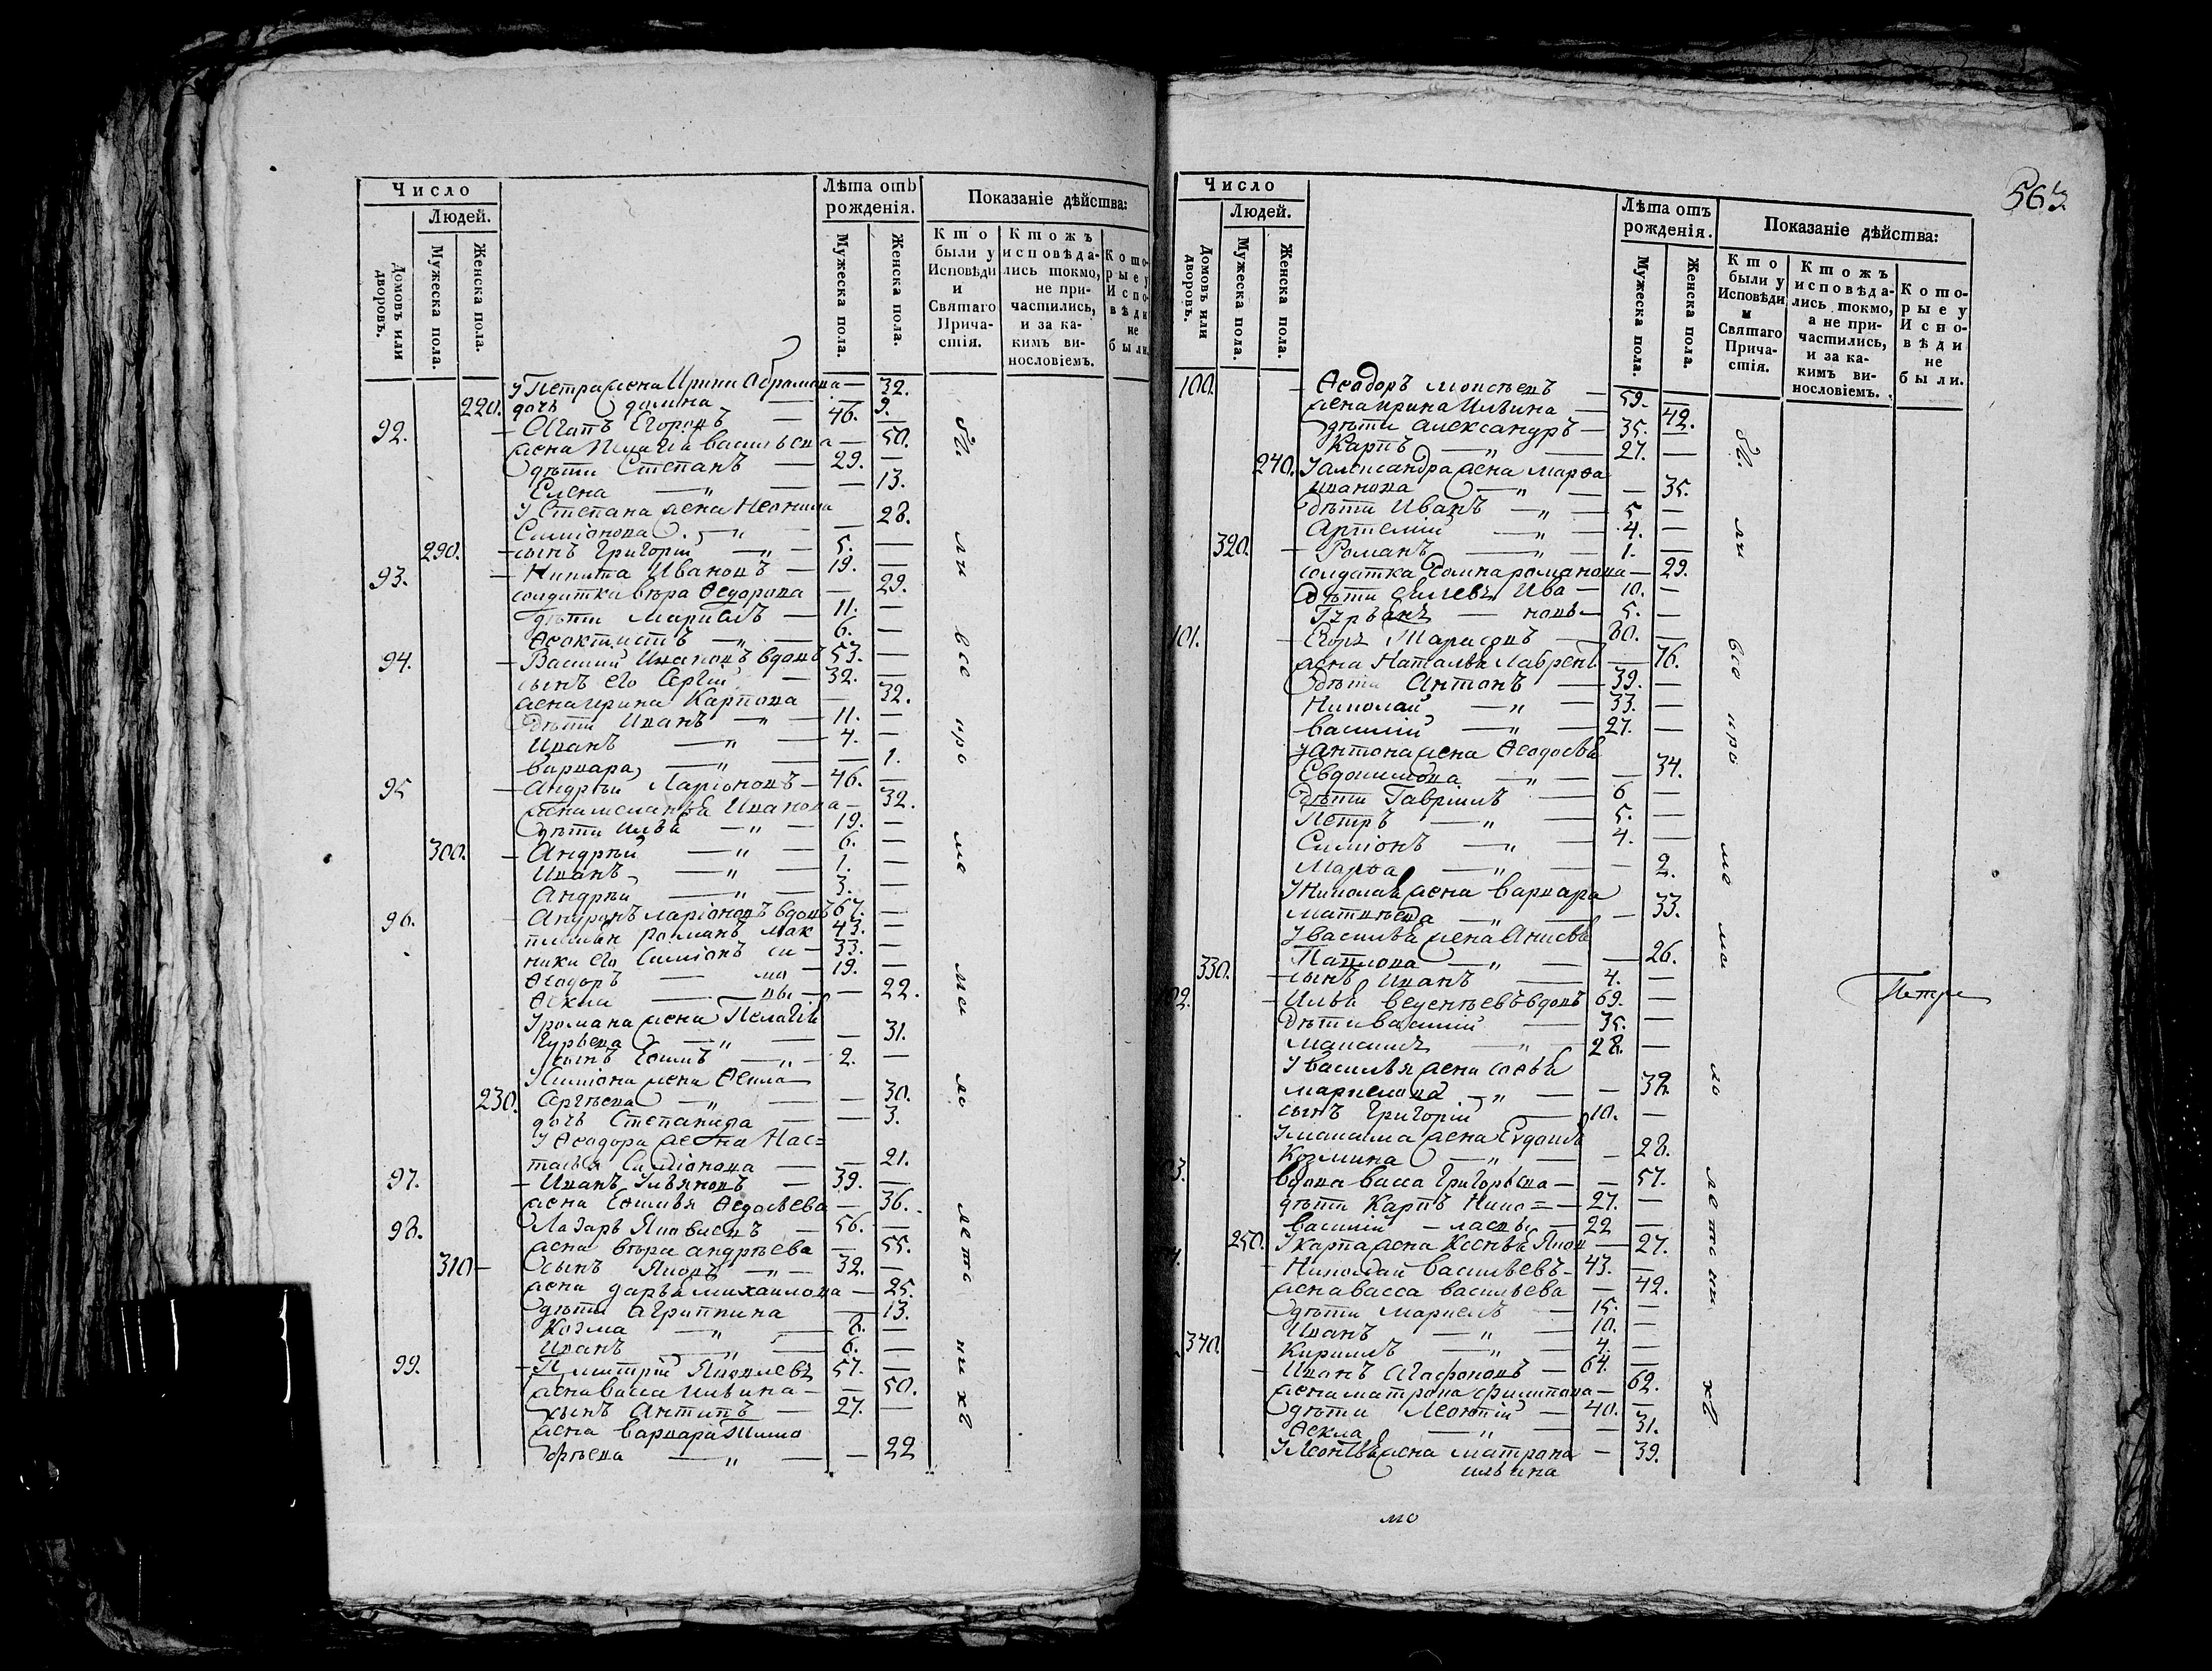 Число
Людей.
Домовъ или дворовъ.
Мужеска пола.
Женска пола.
Лѣта отъ рожденія.
Мужеска пола.
Женска пола.
Показаніе дѣйства:
Кто были у Исповѣди и Святаго Причастія.
Ктожъ исповѣдались токмо, а не причастились, и за какимъ винословіемъ.
Которые у Исповѣди не были.
У Петра жена Ирина Абрамова — 32.
220. дочь Домина — 9.
92. Агапъ Егоровъ — 46. —
жена Пелагія Васильева — 50.
дѣти Степанъ — 29. —
Елена — „ — 13.
У Степана жена Неонила
Симіонова — „ — 28.
290. сынъ Григорій — „ — 5. —
93. Никита Ивановъ — 19. —
солдатка Вѣра Ѳедорова — 29.
дѣти Маркелъ — 11. —
Ѳеоктистъ — „ — 6. —
94. Василій Ивановъ вдовъ 53. —
сынъ его Сергій — 32. —
жена Ирина Карпова — 32.
дѣти Иванъ — „ — 11. —
Иванъ — „ — 4. —
Варвара — „ — 1.
95 Андрей Ларіоновъ — 46. —
жена Меланья Иванова — 32.
дѣти Илья — „ — 19. —
300. Андрей — „ — 6. —
Иванъ — „ — 1. —
Андрей — „ — 3. —
96. Ларіоновъ вдовъ 67. —
Романъ 43. —
ники его Симіонъ — 33. —
Ѳеодоръ — 19. —
Ѳекла — 22.
У Романа жена Пелагія
Гурьева — „ — 31.
сынъ Ефимъ — „ — 2. —
У Симіона жена Ѳекла
230. Сергѣева — „ — 30.
дочь Степанида — 3.
У Ѳеодора жена Нас=
тасья Симіонова — 21.
97. Иванъ Ульяновъ — 39. —
жена Ефимья Ѳедосѣева — 36.
98. Лазарь Яковлевъ — 56. —
жена Вѣра Андрѣева — 55.
310 сынъ Яковъ — „ — 32. —
жена Дарья Михаилова — 25.
дѣти Агрипина — 13.
Козма — „ — 8. —
Иванъ — „ — 6. —
99. Дмитрій Яковлевъ 57. —
жена Васса Ильина — 50.
сынъ Антипъ — 27. —
жена Варвара Тимо
ѳѣева — „ — 22
Число
Людей.
Домовъ или дворовъ.
Мужеска пола.
Женска пола.
Лѣта отъ рожденія.
Мужеска пола.
Женска пола.
Показаніе дѣйства:
Кто были у Исповѣди и Святаго Причастія.
Ктожъ исповѣдались токмо, а не причастились, и за какимъ винословіемъ.
Которые у Исповѣди не были.
563.
100. Ѳеодоръ Моисѣевъ — 59. —
жена Ирина Ильина — 42.
дѣти Александръ — 35. —
Карпъ — „ — 27. —
240. У Александра жена Марѳа
Иванова — „ — 35.
дѣти Иванъ — „ — 5 —
Артемій — „ — 4. —
320. Романъ — „ — 1. —
солдатка Романова — 29.
дѣти Ива — 10. —
новы — 5. —
101. Егоръ — 80. —
жена Наталья Лаврент — 76.
дѣти Антонъ — 39. —
Николай — „ — 33. —
Василій — „ — 27. —
У Антона жена Ѳеодосья
Евдокимова — „ — 34.
дѣти Гавріилъ — „ — 6 —
Петръ — „ — 5. —
Симіонъ — „ — 4. —
Марѳа — „ — 2.
У Николая жена Варвара
Матвѣева — „ — 33.
У Василья жена Анисья
Павлова — „ — 26.
330. сынъ Иванъ — 4. —
Илья вдовъ 69. —
дѣти Василій — 35. —
Максимъ — „ — 28. —
У Василья жена Софья
Маркелова — „ — 38.
сынъ Григорій — 10. —
У Максима жена Евдокія
Козмина — „ — 28.
вдова Васса Григорьева — 57.
дѣти Карпъ Нико= — 27. —
Василій — лаевы — 22 —
250. У Карпа жена Ксенья Яков — 27.
Николай Васильевъ — 43. —
жена Васса Васильева — 42.
дѣти Маркелъ — 15. —
Иванъ — „ — 10. —
340. Кирилъ — „ — 4. —
Иванъ Агафоновъ — 64. —
жена Матрона Филипова — 62.
дѣти Леонтій — 40. —
Ѳекла — „ — 31.
У Леонтья жена Матрона — 39.
Ильина
Петре
мо